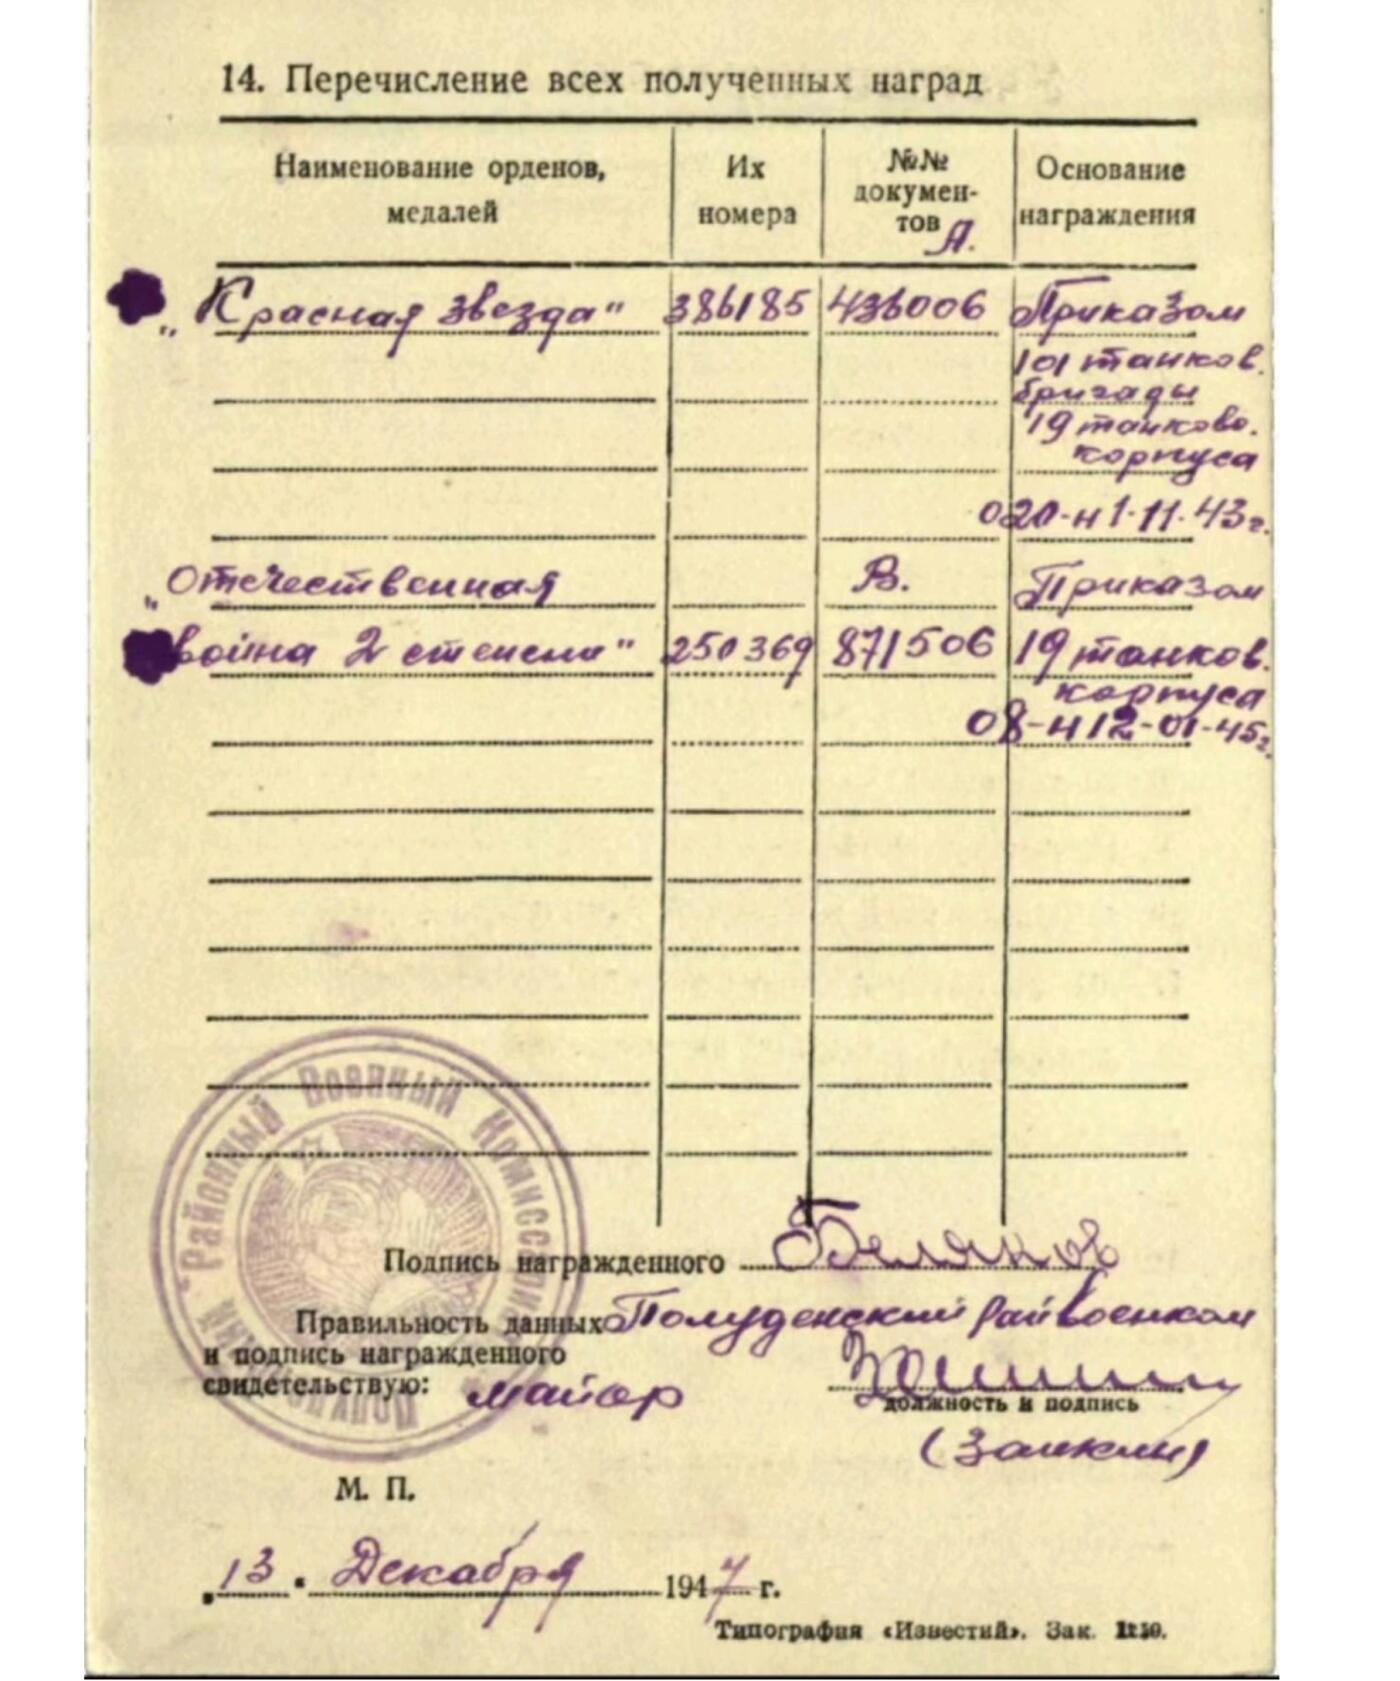 14. Перечисление всех полученных наград
Наименование орденов, медалей
Их номера
№№ документов А.
Основание награждения
„Красная звезда" 386185 436006 Приказом
101 танков.
бригады
19 танково.
корпуса
020-н 1-11-43г.
„Отечественная В. Приказом
война 2 степени" 250369 871506 19 танков.
корпуса
08-н 12-01-45г.
Районный Военный Комиссариат
Подпись награжденного Беляков
Правильность данных Полуденский райвоенком
и подпись награжденного
свидетельствую: майор
должность и подпись
(Заикин)
М. П.
„13" Декабря 1947 г.
Типография «Известий». Зак.